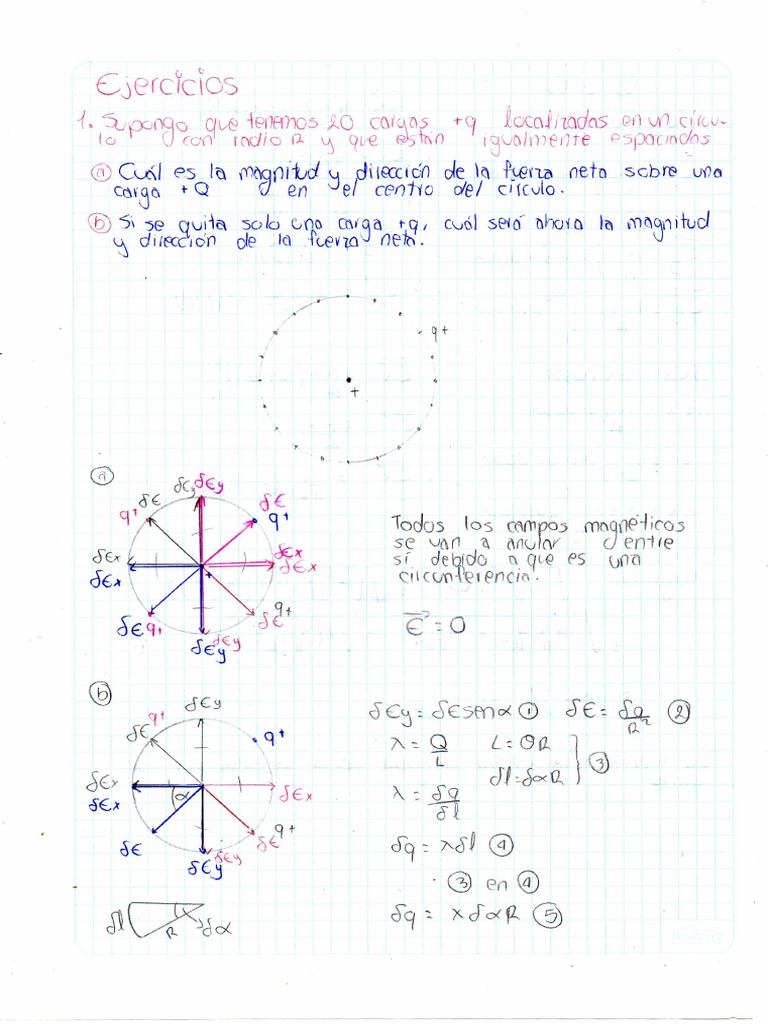 Ejercicios
1. Supongo que tenemos 20 cargas +q localizadas en un círcu-
lo con radio R y que están igualmente espaciadas
a Cuál es la magnitud y dirección de la fuerza neta sobre una
carga +Q en el centro del círculo.
b Si se quita solo una carga +q, cuál será ahora la magnitud
y dirección de la fuerza neta.
q+
+
a
δЄy δЄy
δЄ δЄ
q+ q+
δЄx δЄx
δЄx δЄx
+
δЄ q+ δЄ q+
δЄy δЄy
Todos los campos magnéticos
se van a anular entre
sí debido a que es una
circunferencia.
Є = 0
b
δЄy
q+
δЄ q+
δЄx
δЄx δЄx
α
δЄ δЄ q+
δЄy δЄy
δl R δα
δЄy = δЄsenα ① δЄ = δq/R² ②
λ = Q/L L = ΘR
δl = δαR ③
λ = δq/δl
δq = λδl ④
③ en ④
δq = λδαR ⑤